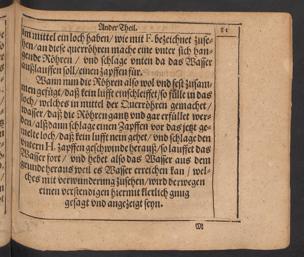 Ander Theil.
81
im mittel ein loch haben / wie mit F. bezeichnet zuse-
hen / an diese querröhren mache eine vnter sich han-
gende Röhren / vnd schlage vnten da das Wasser
außlauffen soll / einen zapffen für.
Wann nun die Röhren also wol vnd fest zusam-
men gefügt / daß kein lufft einschleiffet / so fülle in das
loch / welches in mittel der Querröhren gemachet /
wasser / daß die Röhren gantz vnd gar erfüllet wer-
den / alßdann schlage einen Zapffen vor das jetzt ge-
melte loch / daß kein lufft nein gehet / vnd schlage den
vntern H. zapffen geschwunde herauß / so lauffet das
Wasser fort / vnd hebet also das Wasser aus dem
grunde heraus weil es Wasser erreichen kan / wel-
ches mit verwunderung zusehen / wird derwegen
einen verstendigen hiermit klerlich gnug
gesagt vnd angezeigt seyn.
M